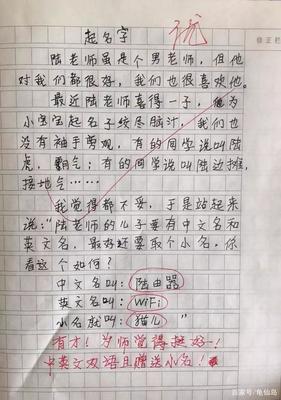 起名字
优
陆老师虽是个男老师，但他
对我们都很好，我们也很喜欢他。
最近陆老师喜得一子，他为
小宝宝起名子绞尽脑汁，我们也
没有袖手旁观，有的同学说叫陆
虎，霸气；有的同学说叫陆边摊，
接地气……
我觉得都不妥，于是站起来
说："陆老师的儿子要有中文名和
英文名，最好还要取个小名，你
看这个如何？
中文名叫：陆由器
英文名叫：WiFi
小名就叫：猫儿"
有才！为师觉得挺好！
中英文双语且赠送小名！
百家号/龟仙岛